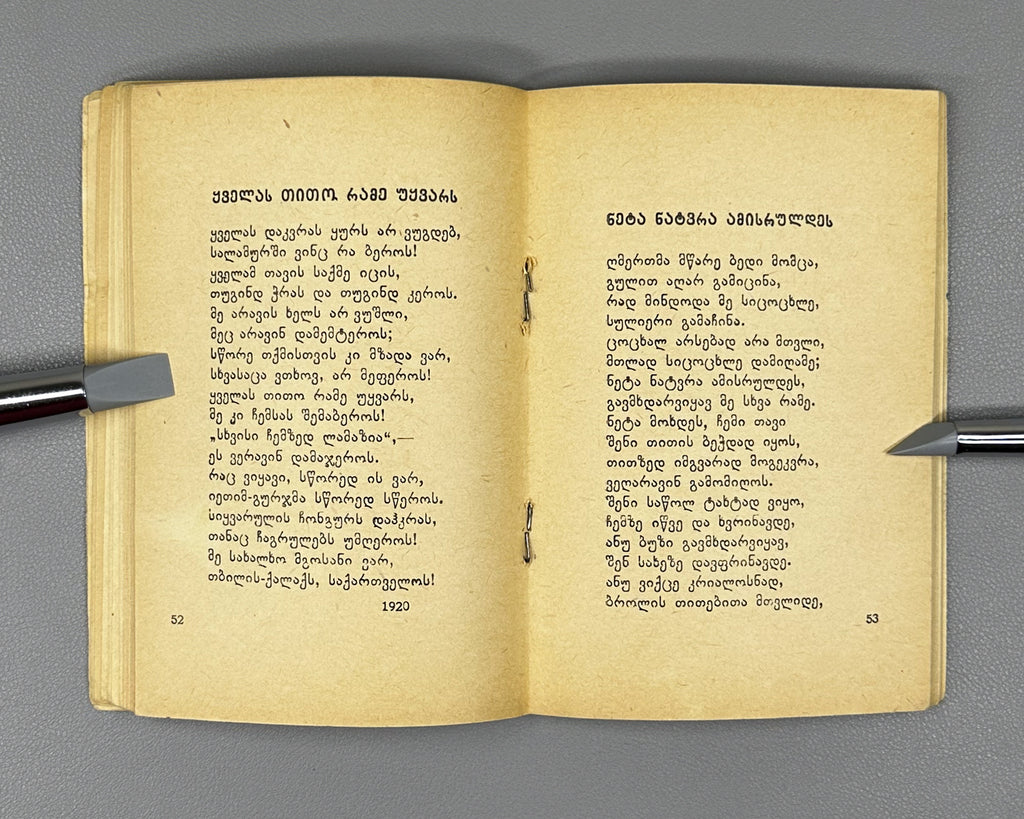 ყველას თითო რამე უყვარს
ყველას დაკვრას ყურს არ ვუგდებ,
სალამურში ვინც რა ბეროს!
ყველამ თავის საქმე იცის,
თუგინდ ჭრას და თუგინდ კეროს.
მე არავის ხელს არ ვუშლი,
მეც არავინ დამემტეროს;
სწორე თქმისთვის კი მზადა ვარ,
სხვასაცა ვთხოვ, არ მეფეროს!
ყველას თითო რამე უყვარს,
მე კი ჩემსას შემაბეროს!
„სხვისი ჩემზედ ლამაზია“,—
ეს ვერავინ დამაჯეროს.
რაც ვიყავი, სწორედ ის ვარ,
იეთიმ-გურჯმა სწორედ სწეროს.
სიყვარულის ჩონგურს დაჰკრას,
თანაც ჩაგრულებს უმღეროს!
მე სახალხო მგოსანი ვარ,
თბილის-ქალაქს, საქართველოს!
1920
52
ნეტა ნატვრა ამისრულდეს
ღმერთმა მწარე ბედი მომცა,
გულით აღარ გამიცინა,
რად მინდოდა მე სიცოცხლე,
სულიერი გამაჩინა.
ცოცხალ არსებად არა მთვლი,
მთლად სიცოცხლე დამიღამე;
ნეტა ნატვრა ამისრულდეს,
გავმხდარვიყავ მე სხვა რამე.
ნეტა მოხდეს, ჩემი თავი
შენი თითის ბეჭდად იყოს,
თითზედ იმგვარად მოგეკვრა,
ვეღარავინ გამომიღოს.
შენი საწოლ ტახტად ვიყო,
ჩემზე იწვე და ხვრინავდე,
ანუ ბუზი გავმხდარვიყავ,
შენ სახეზე დავფრინავდე.
ანუ ვიქცე კრიალოსნად,
ბროლის თითებითა მთვლიდე,
53